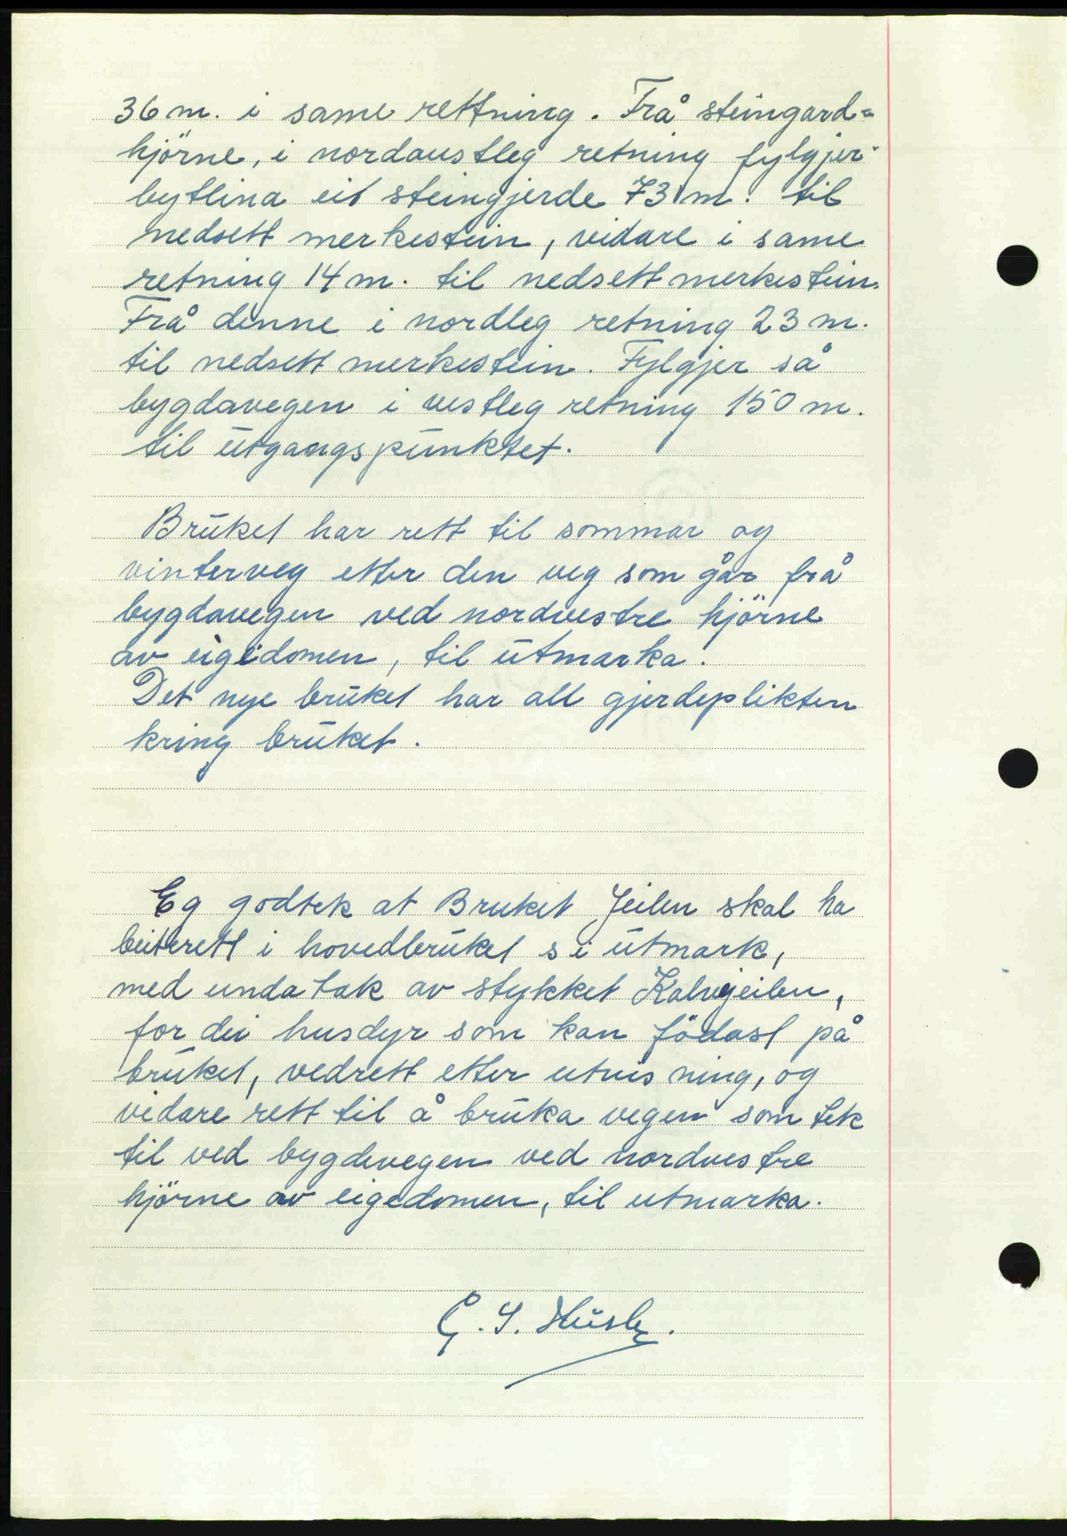 36 m. i same rettning. Frå steingard=
hjörne, i nordaustleg retning fylgjer
bytlina eit steingjerde 73 m. til
nedsett merkestein, vidare i same
retning 14 m. til nedsett merkestein.
Frå denne i nordleg retning 23 m.
til nedsett merkestein. Fylgjer så
bygdavegen i vestleg retning 150 m.
til utgangspunktet.
Bruket har rett til sommar og
vinterveg etter den veg som går frå
bygdavegen ved nordvestre hjörne
av eigedomen, til utmarka.
Det nye bruket har all gjerdeplikten
kring bruket.
Eg godtek at Bruket Jeilen skal ha
beiterett i hovedbruket si utmark,
med undatak av stykket Kalvejeilen,
for dei husdyr som kan födast på
bruket, vedrett etter utvisning, og
vidare rett til å bruka vegen som tek
til ved bygdevegen ved nordvestre
hjörne av eigedomen, til utmarka.
G. S. Husby.